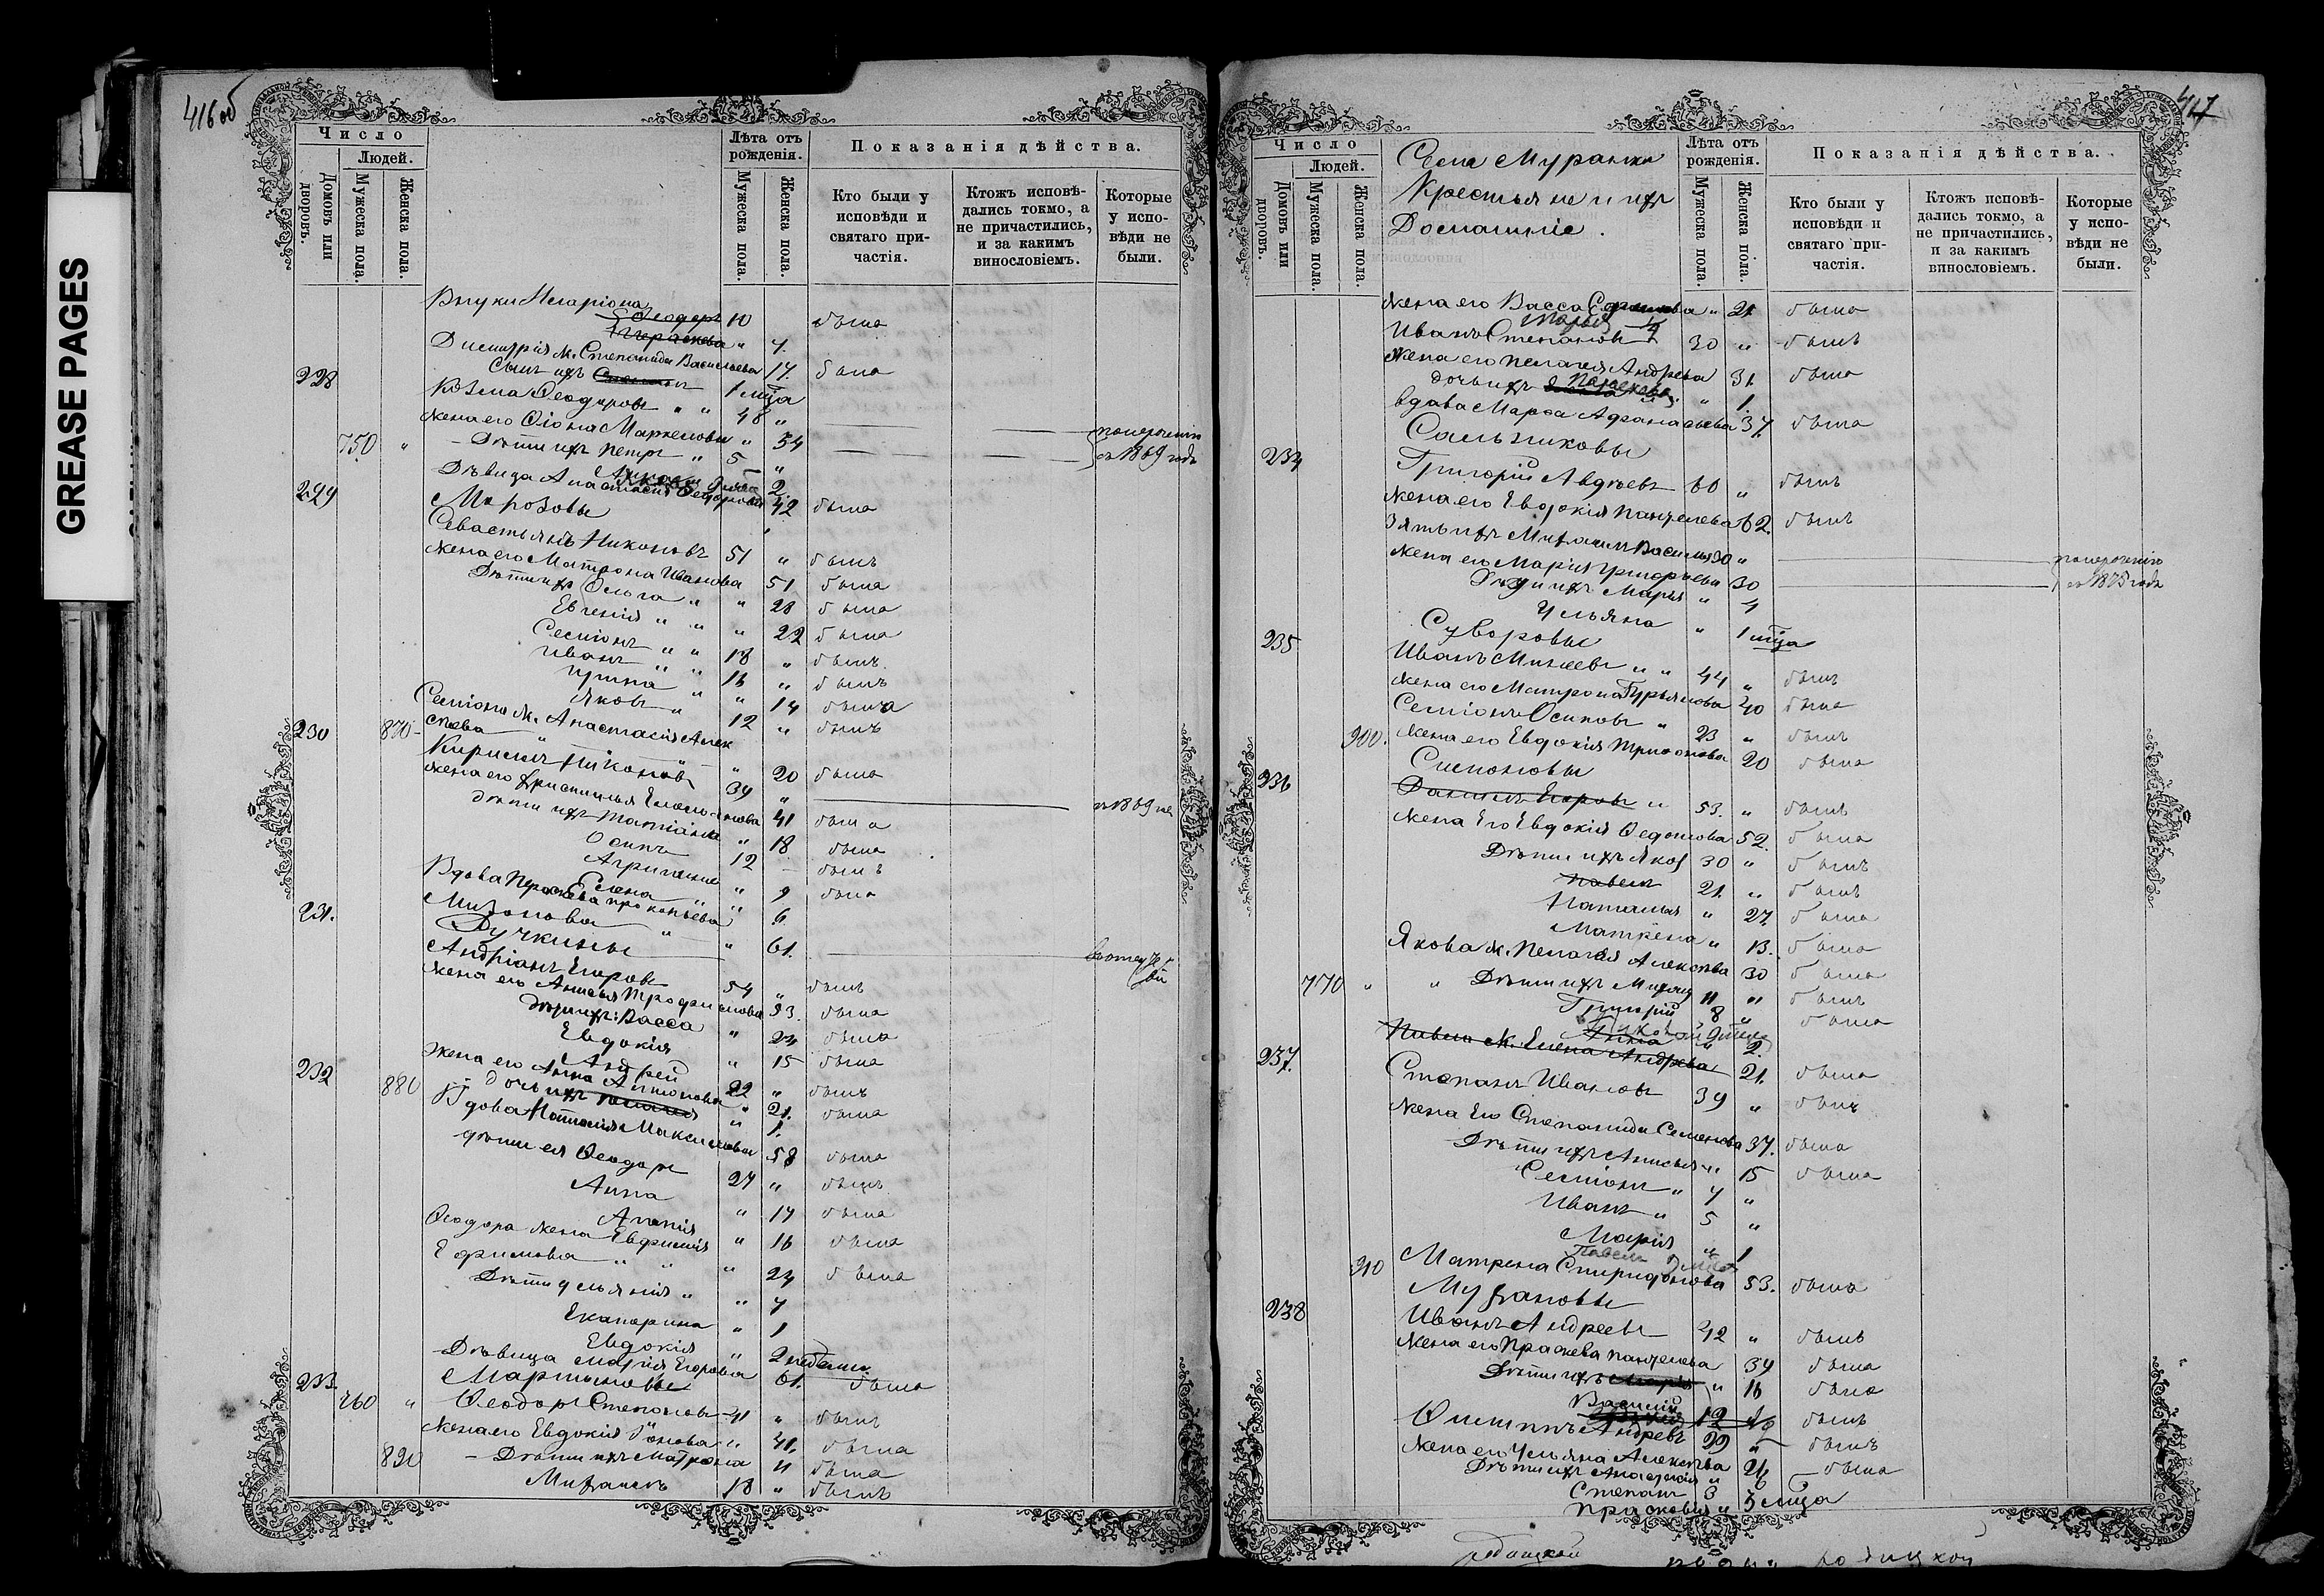 GREASE PAGES
416 об
Число
Людей.
Домовъ или дворовъ.
Мужеска пола.
Женска пола.
Лѣта отъ рожденія.
Мужеска пола.
Женска пола.
Показанія дѣйства.
Кто были у исповѣди и святаго причастія.
Ктожъ исповѣдались токмо, а не причастились, и за какимъ винословіемъ.
Которые у исповѣди не были.
Внуки Иларіона
Ѳеодоръ 10 была
" 7.
Димитрія ж. Степанида Васильева 17. была
Сынъ ихъ 1 мца
228 Козма Ѳеодоровъ " " 48 "
жена его " 54
750 " Дѣти ихъ Петръ " 5 "
2.
по нерочению съ 1869 года
Дѣвица Анастасія Ѳеодорова 42 была
229 Морозовы
Севастьянъ Никоновъ 51 " былъ
жена его Матрона Иванова 51 была
Дѣти ихъ Ольга " " 28 была
Евгенія " " " 22 была
Семіонъ " " 18 " былъ
Иванъ " " 16 " былъ
Ирина " " 14 была
Яковъ " 12 " былъ
Семіона ж. Анастасія Алексѣева " 20 была
230 870
Кирилъ Никоновъ 39 "
жена его 41 была
дѣти ихъ Татіана " 18 была
Осипъ 12 былъ
Агрипина " 9 была
Елена " " 6
Вдова Прасковья Прокопьева
" 61.
231. Дучкины
Андріанъ Егоровъ 54 " былъ
жена его Анисья Трофимова 53. была
дѣти ихъ: Васса " 24 была
Евдокія " 15 была
Андрей 22 " былъ
жена его Анна Антонова " 21. была
232 880 дочь ихъ " 1.
Вдова Наталія Максимова 58 была
дѣти ея Ѳеодоръ 27 " былъ
Анна " 17 была
" 16 была
Ѳеодора жена Евфимія
Ефимова " " " 24 была
Дѣти Ульянія " " 4
Екатерина " 1
Евдокія " 2 недели
Дѣвица Марія Егорова 61. была
233 Мартыновы
760 " Ѳеодоръ Степановъ 41 " былъ
жена его Евдокія Іонова " 41. была
890 Дѣти ихъ Матрона 11 была
Михаилъ 18 " былъ
417
Число
Людей.
Домовъ или дворовъ.
Мужеска пола.
Женска пола.
Села Муранки
Крестьяне и ихъ
Домашніе.
Лѣта отъ рожденія.
Мужеска пола.
Женска пола.
Показанія дѣйства.
Кто были у исповѣди и святаго причастія.
Ктожъ исповѣдались токмо, а не причастились, и за какимъ винословіемъ.
Которые у исповѣди не были.
жена его Васса " 21 была
Иванъ Степановъ 30 " былъ
жена его Пелагея Андреева 31. была
дочь ихъ " 1.
вдова Марѳа Афанасьева 37. была
Сальниковы
234 Григорій Авдѣевъ 60 " былъ
жена его Евдокія Пантелеева 62. былъ
Зять ихъ Михаилъ Васильевъ 30 "
жена его Марія Григорьева 30
Дѣти ихъ Марья " 4
Ульяна " 1 мца
по нерочению съ 1875 года
235 Суворовы
Иванъ Минѣевъ " " 44 " былъ
жена его Матрона Гурьянова 40 была
Семіонъ Осиповъ " 23 " былъ
900. жена его Евдокія Трифонова 20 была
236 Симоновы
Данилъ Егоровъ " 53. " былъ
жена Его Евдокія Ѳедотова 52. была
Дѣти ихъ Яковъ 30 " былъ
Павелъ 21. " былъ
Наталья " 27. была
Матрена " 13. была
Якова ж. Пелагея Алексѣева 30 была
770 " " Дѣти ихъ Михаилъ 11 " былъ
Григорій 8 " была
Анна " 2.
Павела ж. Елена Андреева 21. была
237. Степанъ Ивановъ 39 " былъ
жена Его Степанида Семенова 37. была
Дѣти ихъ Анисья " 15 была
Семіонъ " 7 "
Иванъ " 5 "
Марія " 1
Павелъ
910 Матрена Спиридонова 53. была
Мурзановы
238 Иванъ Андреевъ 42 " былъ
жена его Праскева Пантелеева 39 была
Дѣти ихъ " 16 была
Василій 12 былъ
Филиппъ Андреевъ 29 " былъ
жена его Ульяна Алексѣева 26 была
Дѣти ихъ Анастасія "
Степанъ 3
Прасковія " 3 мца